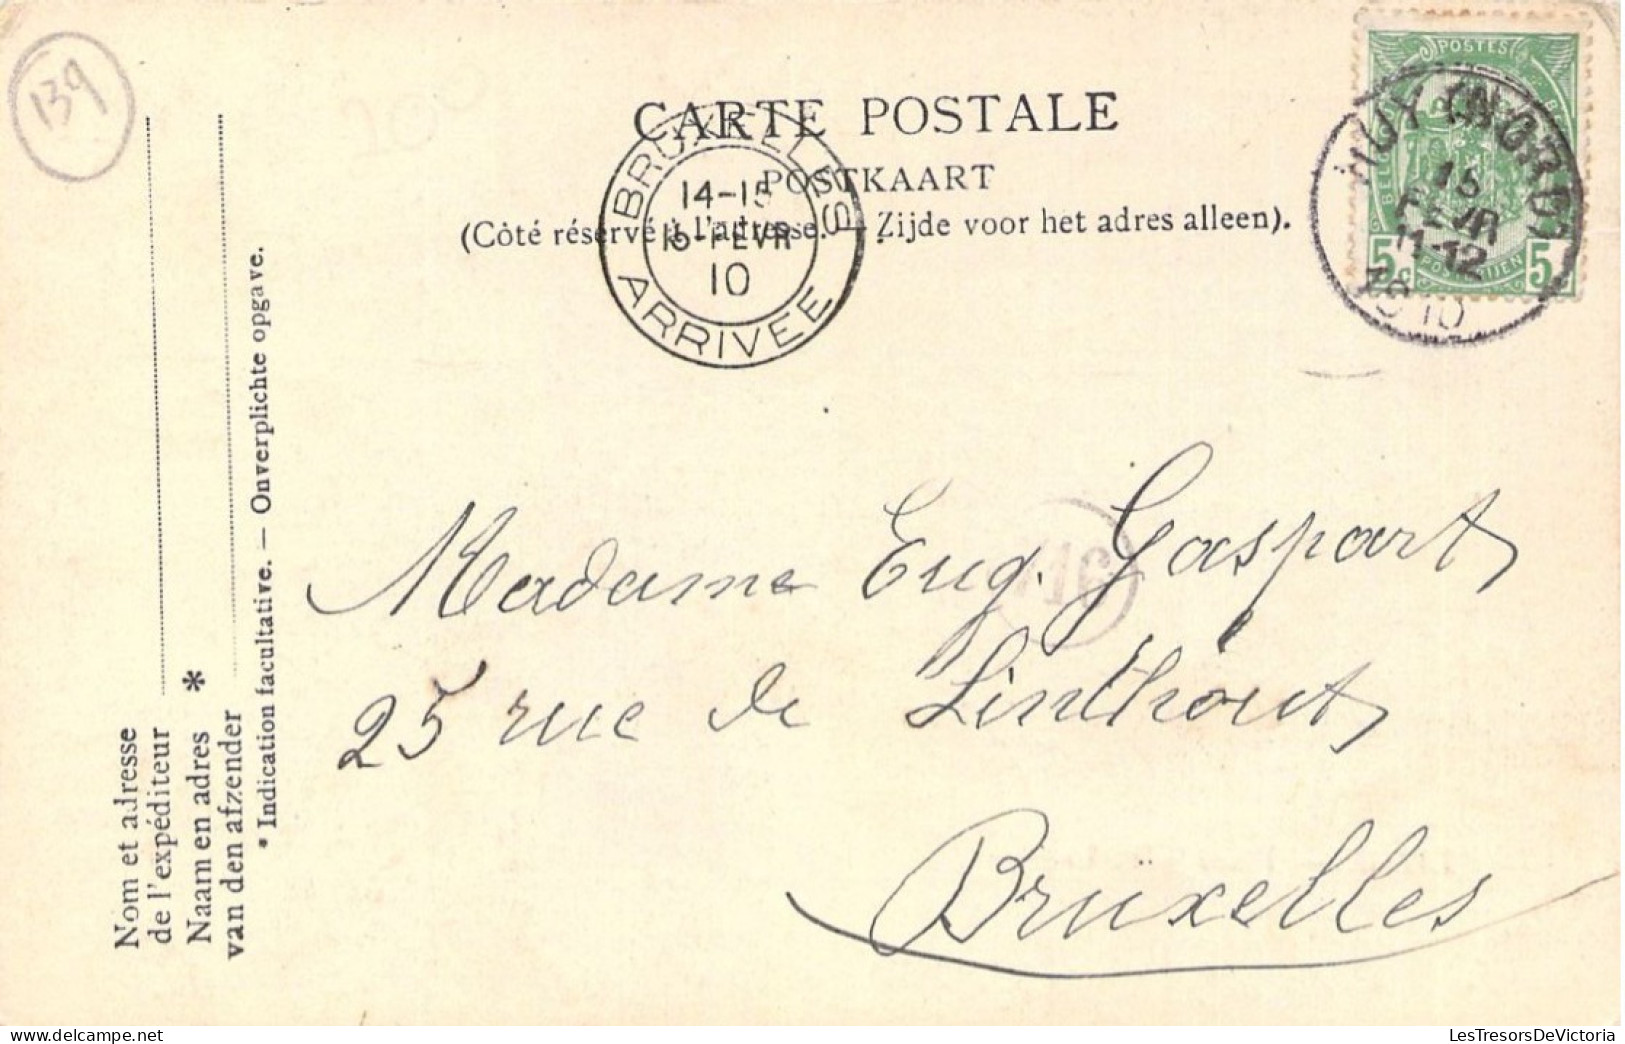 139
CARTE POSTALE
POSTKAART
(Côté réservé à l'adresse. — Zijde voor het adres alleen).
BRUXELLES
14-15
16-FEVR
10
ARRIVEE
POSTES
BELG
5c POSTERIJEN 5
HUY (NORD)
16
FEVR
11-12
1910
Madame Eug. Gaspart
25 rue de Linthout
Bruxelles
Nom et adresse
de l'expéditeur
Naam en adres *
van den afzender
* Indication facultative. — Onverplichte opgave.
LesTresorsDeVictoria